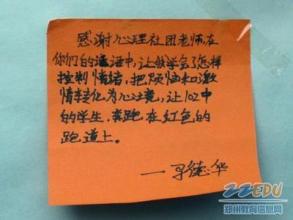 感谢心理社团老师在
你们的活动中，让我学会了怎样
控制情绪，把烦恼和激
情转化为心境，让102中
的学生，奔跑在红色的
跑道上。
华
22EDU
郑州教育信息网